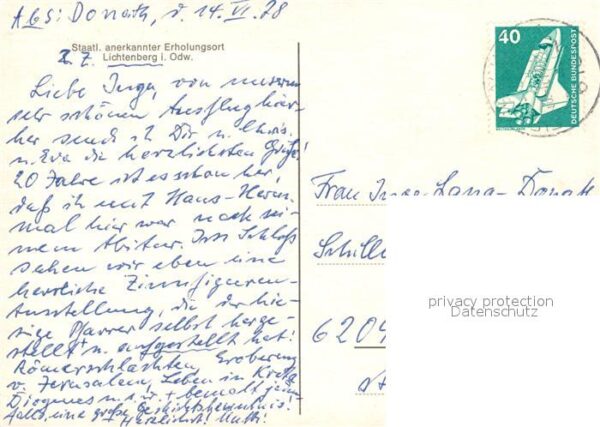 Abs: Donath, d. 14. VI. 78
Staatl. anerkannter Erholungsort
z. Z. Lichtenberg i. Odw.
Liebe Inga, von unserem
sehr schönen Ausflug hier-
her send ich Dir u. Chris.
u. Eva die herzlichsten Grüße!
20 Jahre ist es schon her,
daß ich mit Hans-Herm.
mal hier war nach sei-
nem Abitur. Im Schloß
sahen wir eben eine
herrliche Zinnfiguren-
Ausstellung, die der hie-
sige Pfarrer selbst herge-
stellt u. aufgestellt hat!
Römerschlachten, Eroberung
v. Jerusalem, Leben in Kreta,
Diogenes u.s.w. + bemalt
eine große Geschichtskenntnis!
Herzlichst! Mutti!
40
DEUTSCHE BUNDESPOST
Frau Inga-Lana Donath
Schille
6204
privacy protection
Datenschutz